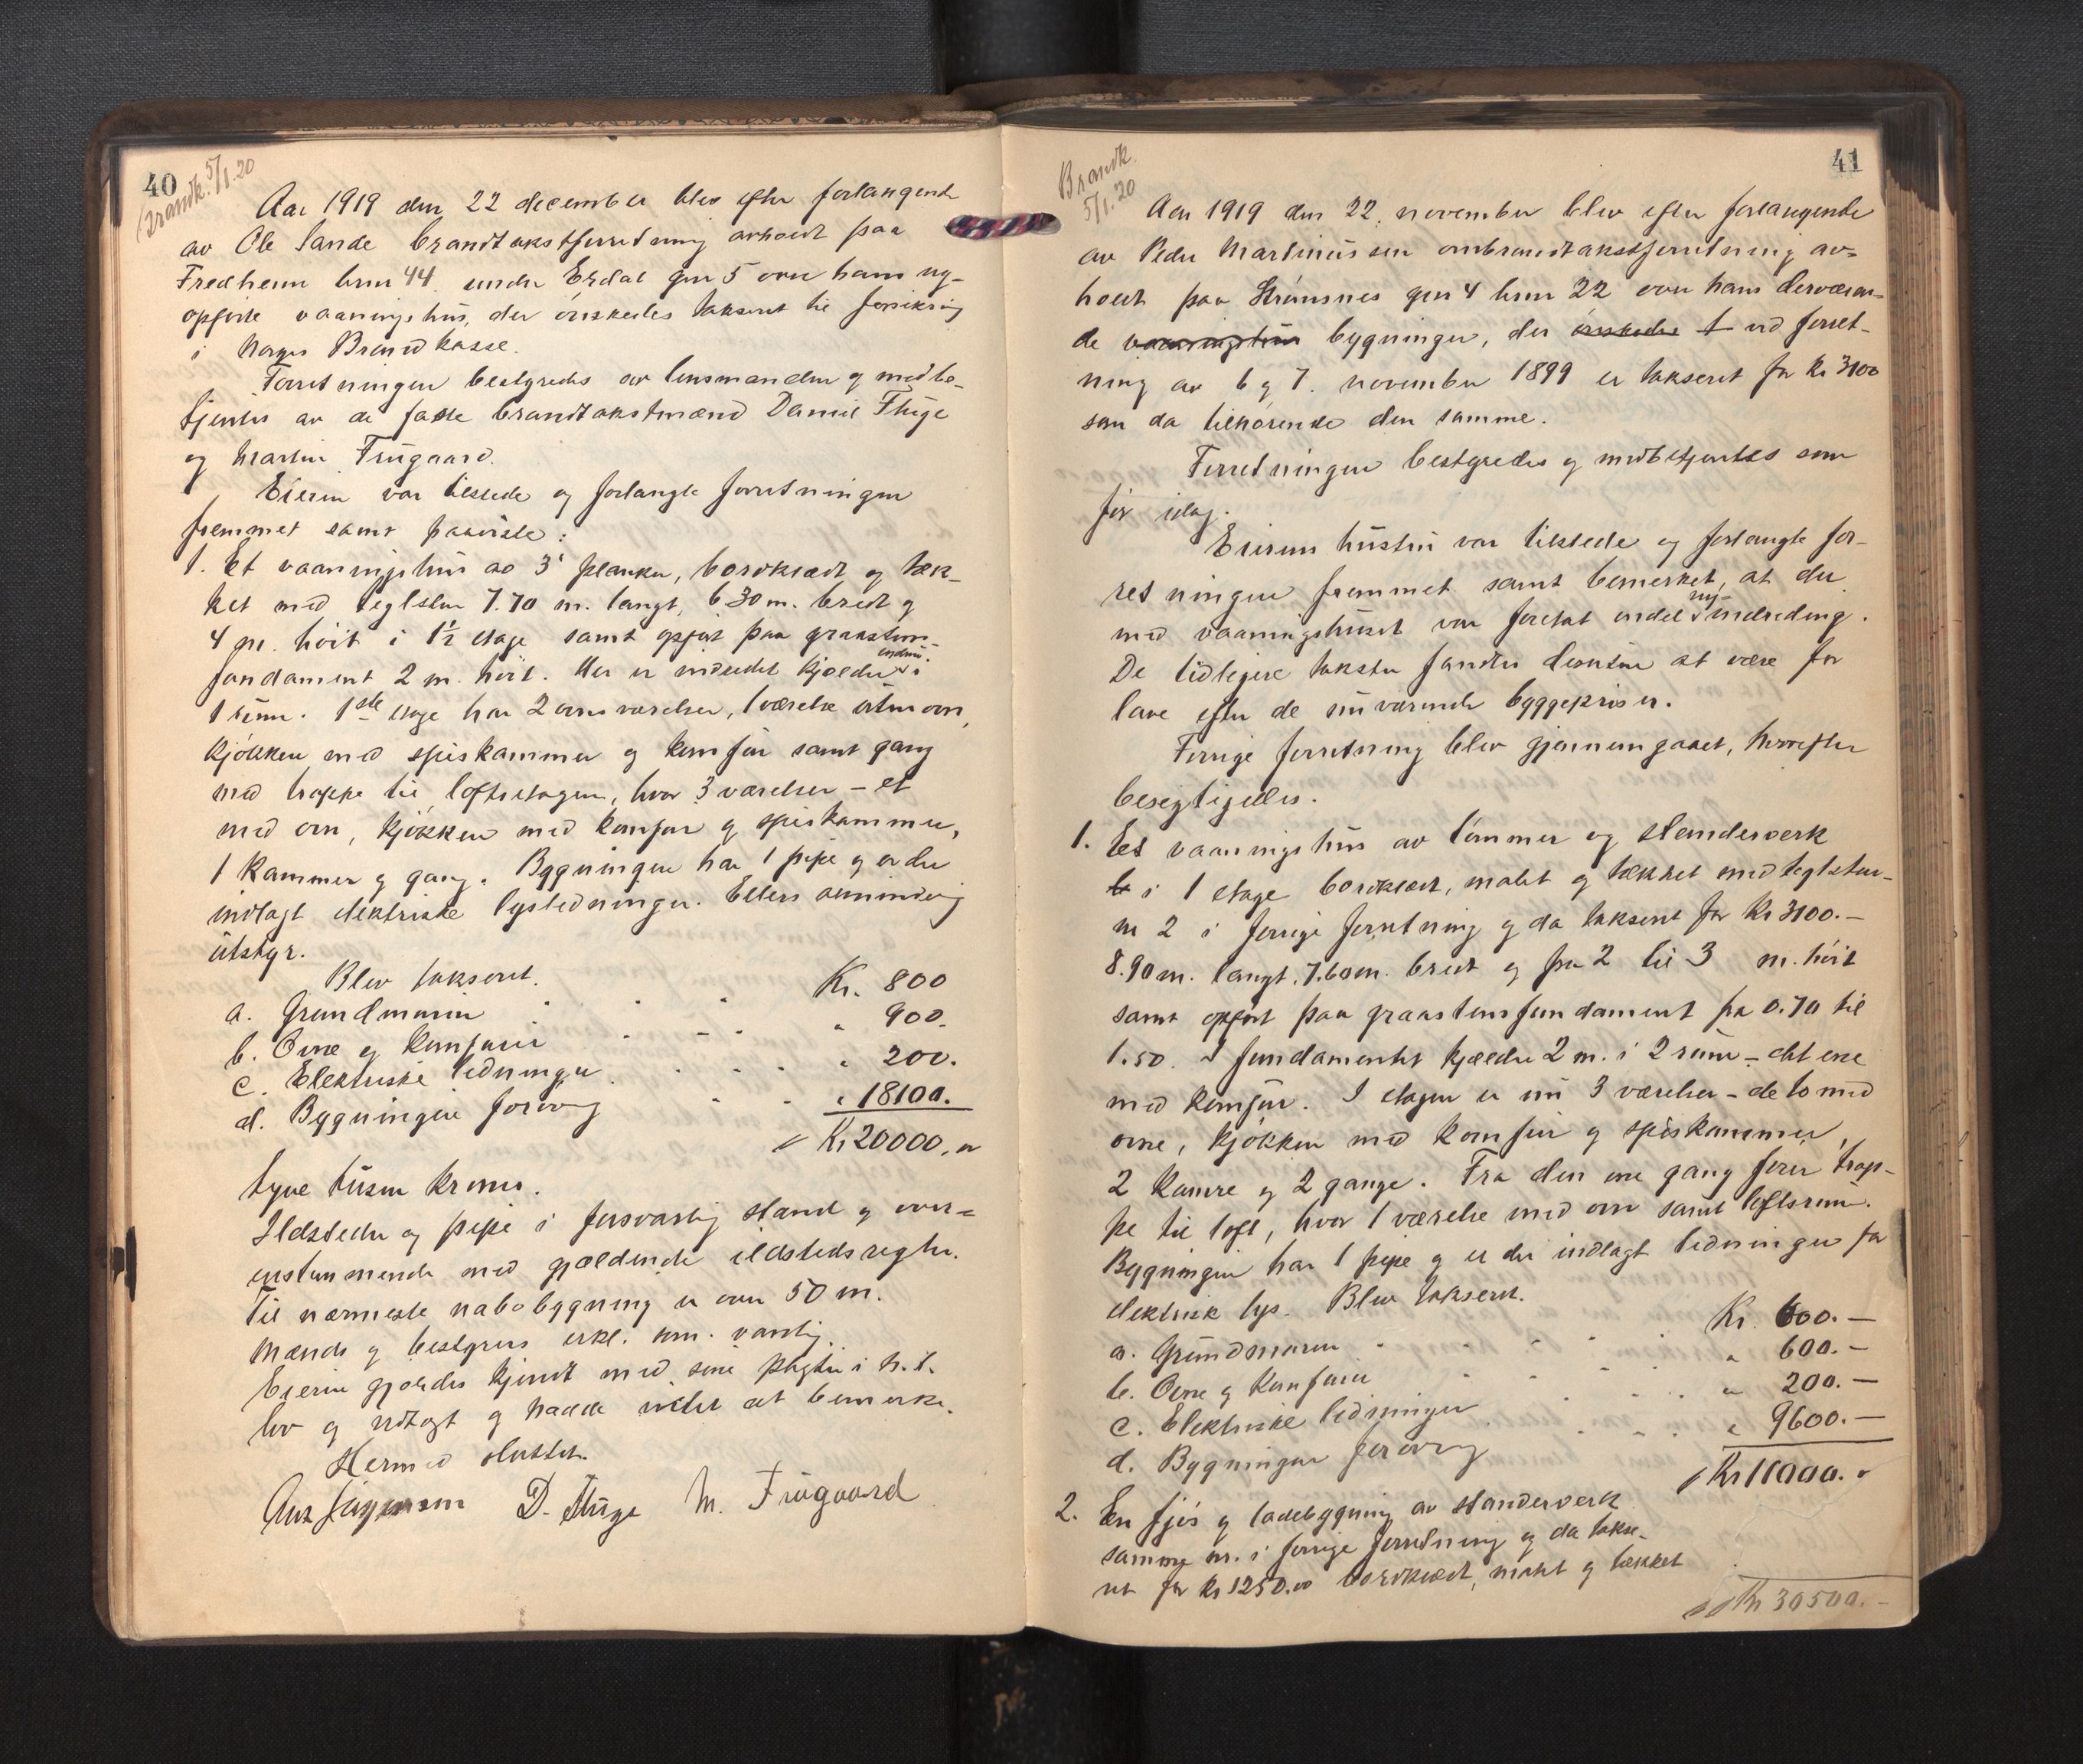 40
Brandk. 5/1.20
Aar 1919 den 22 december blev efter forlangende
av Ole Sande brandtakstforretning avholdt paa
Fredheim brnr 44 under Erdal gnr 5 over hans ny-
opførte vaaningshus, der ønskedes takseret til forsikring
i Norges Brandkasse.
Forretningen bestyredes av lensmanden og medbe-
tjentes av de faste brandtakstmænd Daniel Fluge
og Martin Frugaard.
Eieren var tilstede og forlangte forretningen
fremmet samt paaviste:
1. Et vaaningshus av 3" planker, bordklædt og tæk-
ket med teglsten 7.70 m. langt, 6.30 m. bredt og
4 m. høit i 1½ etage samt opført paa graastens-
fundament 2 m. høit. Her er indredet kjælder i
1 rum. 1ste etage har 2 ovnsværelser, 1 værelse uten ovn,
kjøkken med spiskammer og komfur samt gang
med trappe til loftsetagen, hvor 3 værelser - et
med ovn, kjøkken med komfur og spiskammer,
1 kammer og gang. Bygningen har 1 pipe og er der
indlagt elektriske lysledninger. Ellers almindelig
utstyr.
Blev takseret.
a. Grundmuren Kr. 800
b. Ovne og komfurer " 900.
c. Elektriske ledninger " 200.
d. Bygningen forøvrig " 18100.
Kr 20000, er
tyve tusen kroner.
Ildsteder og pipe i forsvarlig stand og over-
ensstemmende med gjældende ildstedsregler.
Til nærmeste nabobygning er over 50 m.
Mænds og bestyrers erkl. som vanlig.
Eieren gjordes kjendt med sine pligter i h. t.
lov og vedtægt og hadde intet at bemerke.
Hermed sluttet.
D. Fluge M. Frugaard
41
Brandk.
5/1.20
Aar 1919 den 22. november blev efter forlangende
av Peder Martinussen ombrandtakstforretning av-
holdt paa Strømsnes gnr 4 brnr 22 over hans derværen-
de vaaningshus bygninger, der ønskedes t ved forret-
ning av 6 og 7. november 1899 er takseret for kr 3100
som da tilhørende den samme.
Forretningen bestyredes og medbetjentes som
før idag.
Eierens hustru var tilstede og forlangte for-
retningen fremmet samt bemerket, at der
med vaaningshuset var foretat endel ny-indredning.
De tidligere takster fandtes desuten at være for
lave efter de nuværende byggepriser.
Forrige forretning blev gjennemgaaet, hvorefter
besigtigedes.
1. Et vaaningshus av tømmer og stenderverk
b i 1 etage bordklædt, malet og tækket med teglsten-
nr 2 i forrige forretning og da takseret for kr 3100.-
8.90 m. langt, 7.60 m. bredt og fra 2 til 3 m. høit
samt opført paa graastensfundament fra 0.70 til
1.50. I fundamentet kjælder 2 m. i 2 rum - det ene
med komfur. I etagen er nu 3 værelser - de to med
ovne, kjøkken med komfur og spiskammer,
2 kamre og 2 gange. Fra den ene gang fører trap-
pe til loft, hvor 1 værelse med ovn samt loftsrum.
Bygningen har 1 pipe og er der indlagt ledninger for
elektrisk lys. Blev takseret.
a. Grundmuren Kr. 600.-
b. Ovne og komfurer " 600.-
c. Elektriske ledninger " 200.-
d. Bygningen forøvrig " 9600.-
Kr 11000.-
2. En fjøs og ladebygning av stenderverk
samme nr. i forrige forretning og da takse-
ret for kr 1250.00 bordklædt, malet og tækket
Kr 30500.-